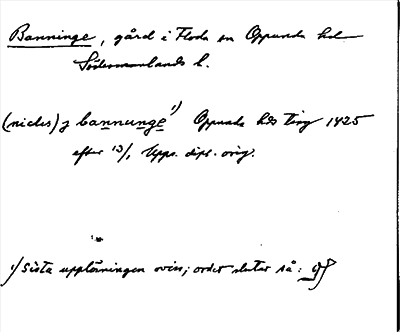 Banninge, gård i Floda sn Oppunda hd
Södermanlands l.
(niclis) j bannunge 1) Oppunda hds ting 1425
efter 13/1, Upps. dipl. orig.
1) Sista upplösningen oviss; ordet slutar så: